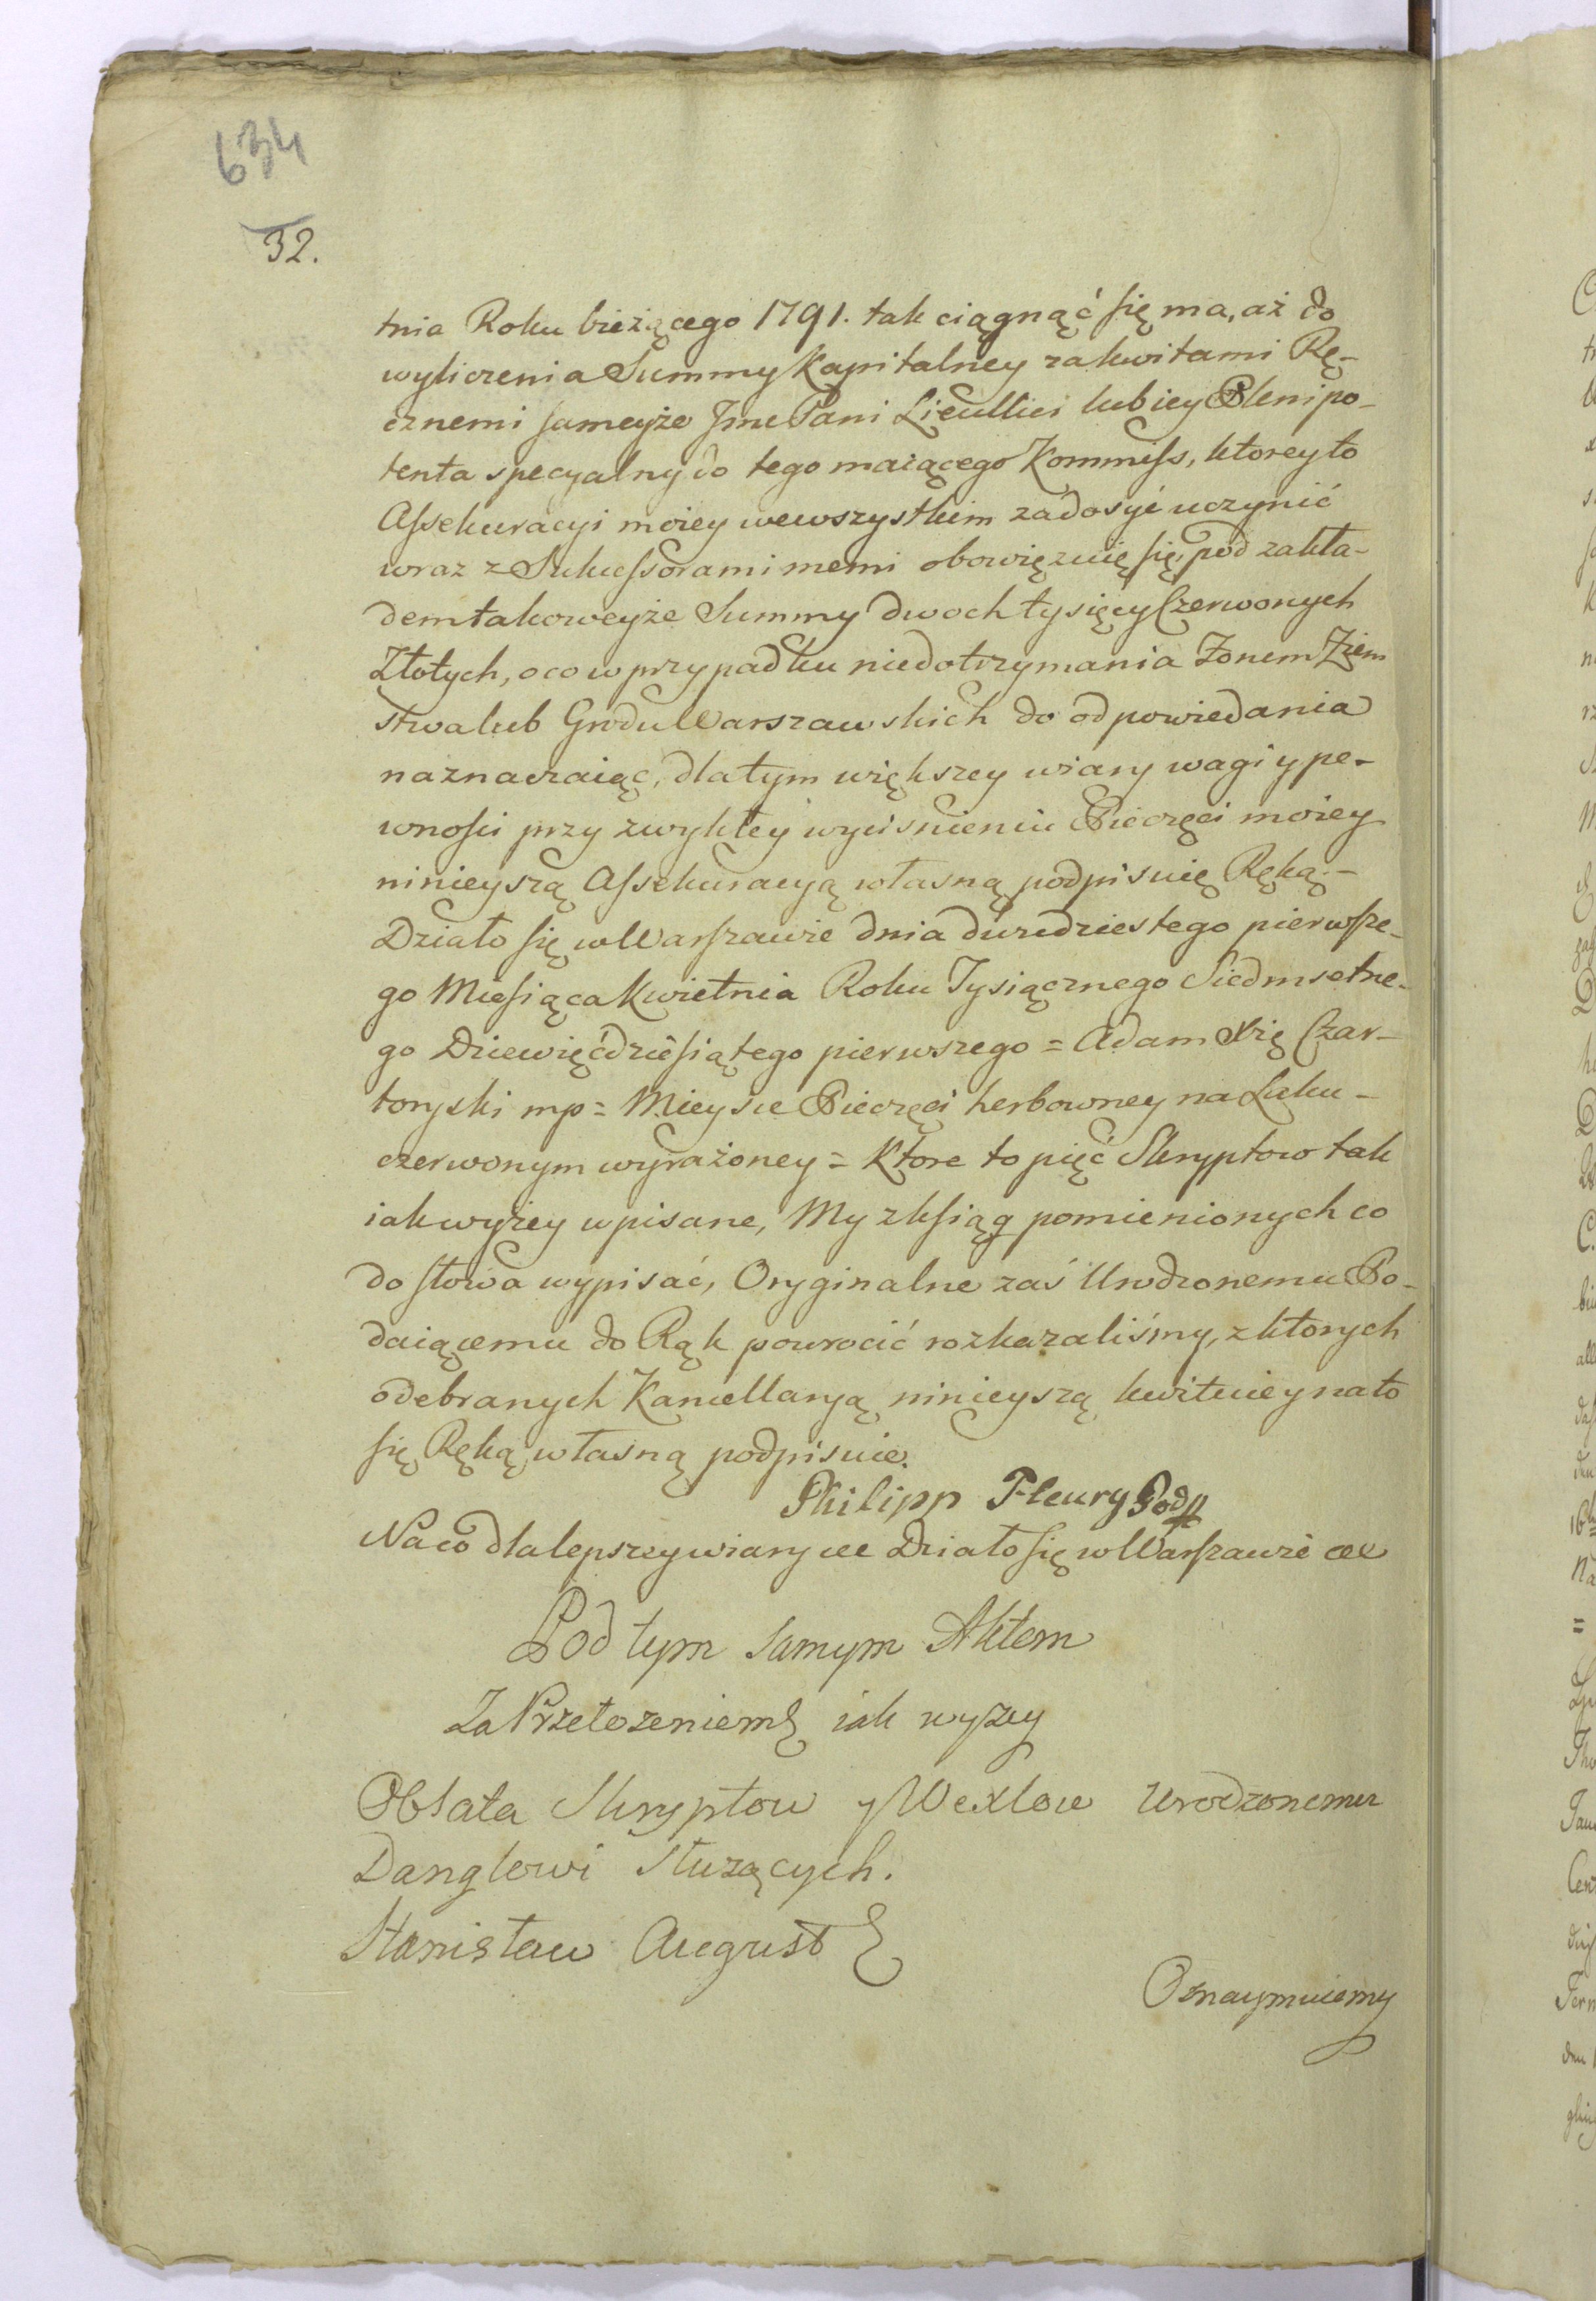 634
32.
tnia Roku bieżącego 1791. tak ciągnąć się ma, aż do
wyliczenia Summy Kapitalney zakwitami Rę-
cznemi sameyże Jme Pani Lieullier lub iey Plenipo-
tenta specyalny do tego maiącego Kommiss, ktorey to
Assekuracyi moiey wewszystkim zadosyć uczynić
wraz z Sukcessorami memi obowięzuię się, pod zakła-
dem takoweyże Summy dwoch tysięcy Czerwonych
Złotych, o co w przypadku niedotrzymania Forum Ziem
stwa lub Grodu Warszawskich do odpowiedania
naznaczaiąc, dla tym większey wiary wagi y pe-
wności przy zwykłey wyciśnieniu Pieczęci moiey
ninieyszą Assekuracyą własną podpisuię Ręką.-
Działo się w Warszawie dnia dwudziestego pierwsze-
go Miesiąca Kwietnia Roku Tysiącznego Siedmsetne-
go Dziewięćdziesiątego pierwszego = Adam Xię Czar-
toryski mp = Mieysce Pieczęci herbowney na Laku -
czerwonym wyrażoney = Ktore to pięć Skryptow tak
iak wyżey wpisane, My z ksiąg pomienionych co
do słowa wypisać, Oryginalne zaś Urodzonemu Po-
daiącemu do Rąk powrocić rozkazaliśmy, z ktorych
odebranych Kancellaryą ninieyszą kwituie y na to
się Ręką własną podpisuie.
Philipp Fleury Podp
Na co dla lepszey wiary etc Działo się w Warszawie etc
Pod tym samym Aktem
Za Przełożeniem iak wyzey
Oblata Skryptow y Wexlow Urodzonemu
Danglowi Służących.
Stanisław August
Oznaymuiemy